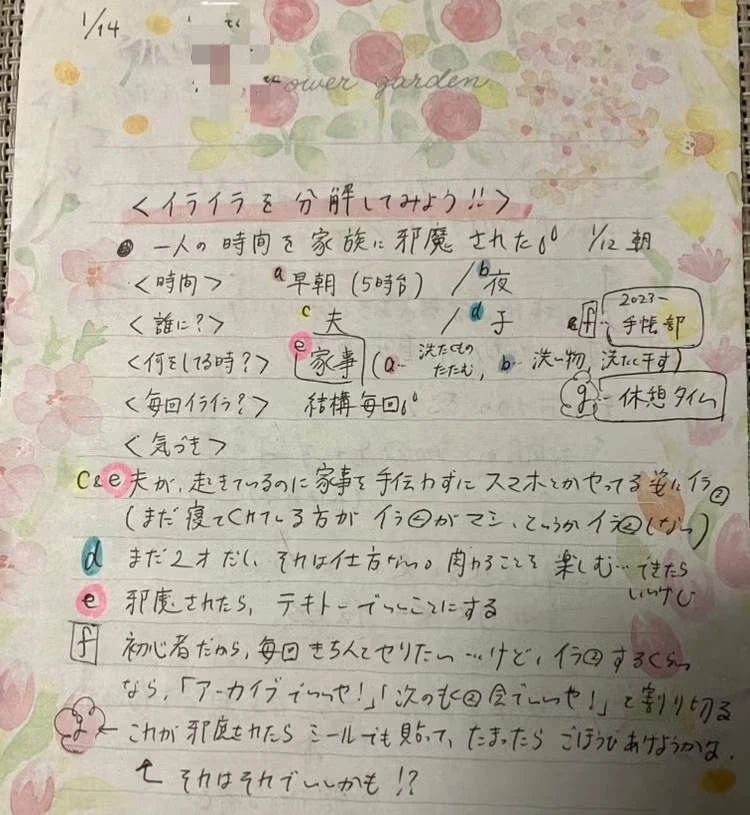 1/14
ower garden
<イライラを分解してみよう!!>
一人の時間を家族に邪魔された 1/12 朝
<時間> a 早朝(5時台) / b 夜
<誰に?> c 夫 / d 子 f… 2023〜手帳部
<何をしてる時?> e 家事 (a… 洗たくものたたむ, b… 洗い物, 洗たく干す)
g… 休憩タイム
<毎回イライラ?> 結構毎回
<気づき>
c&e 夫が、起きているのに家事を手伝わずにスマホとかやってる姿にイラ②
(まだ寝てくれている方がイラ②がマシ、というかイラ②しない)
d まだ2才だし、それは仕方ない。関わることを楽しむ…できたらいいけど
e 邪魔されたら、テキトーでいいことにする
f 初心者だから、毎回きちんとやりたい…けど、イラ②するくらい
なら、「アーカイブでいいや!」「次のもく②会でいいや!」と割り切る
g ← これが邪魔されたらシールでも貼って、たまったらごほうびあげようかな。
↑ それはそれでいいかも!?